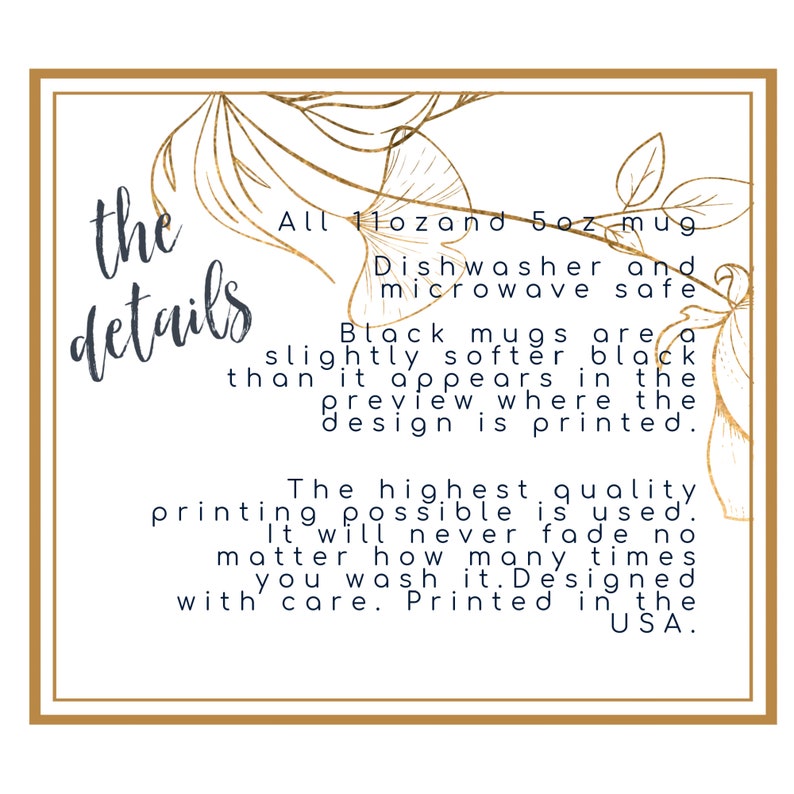 the
details
All 11ozand 5oz mug
Dishwasher and
microwave safe
Black mugs are a
slightly softer black
than it appears in the
preview where the
design is printed.
The highest quality
printing possible is used.
It will never fade no
matter how many times
you wash it.Designed
with care. Printed in the
USA.